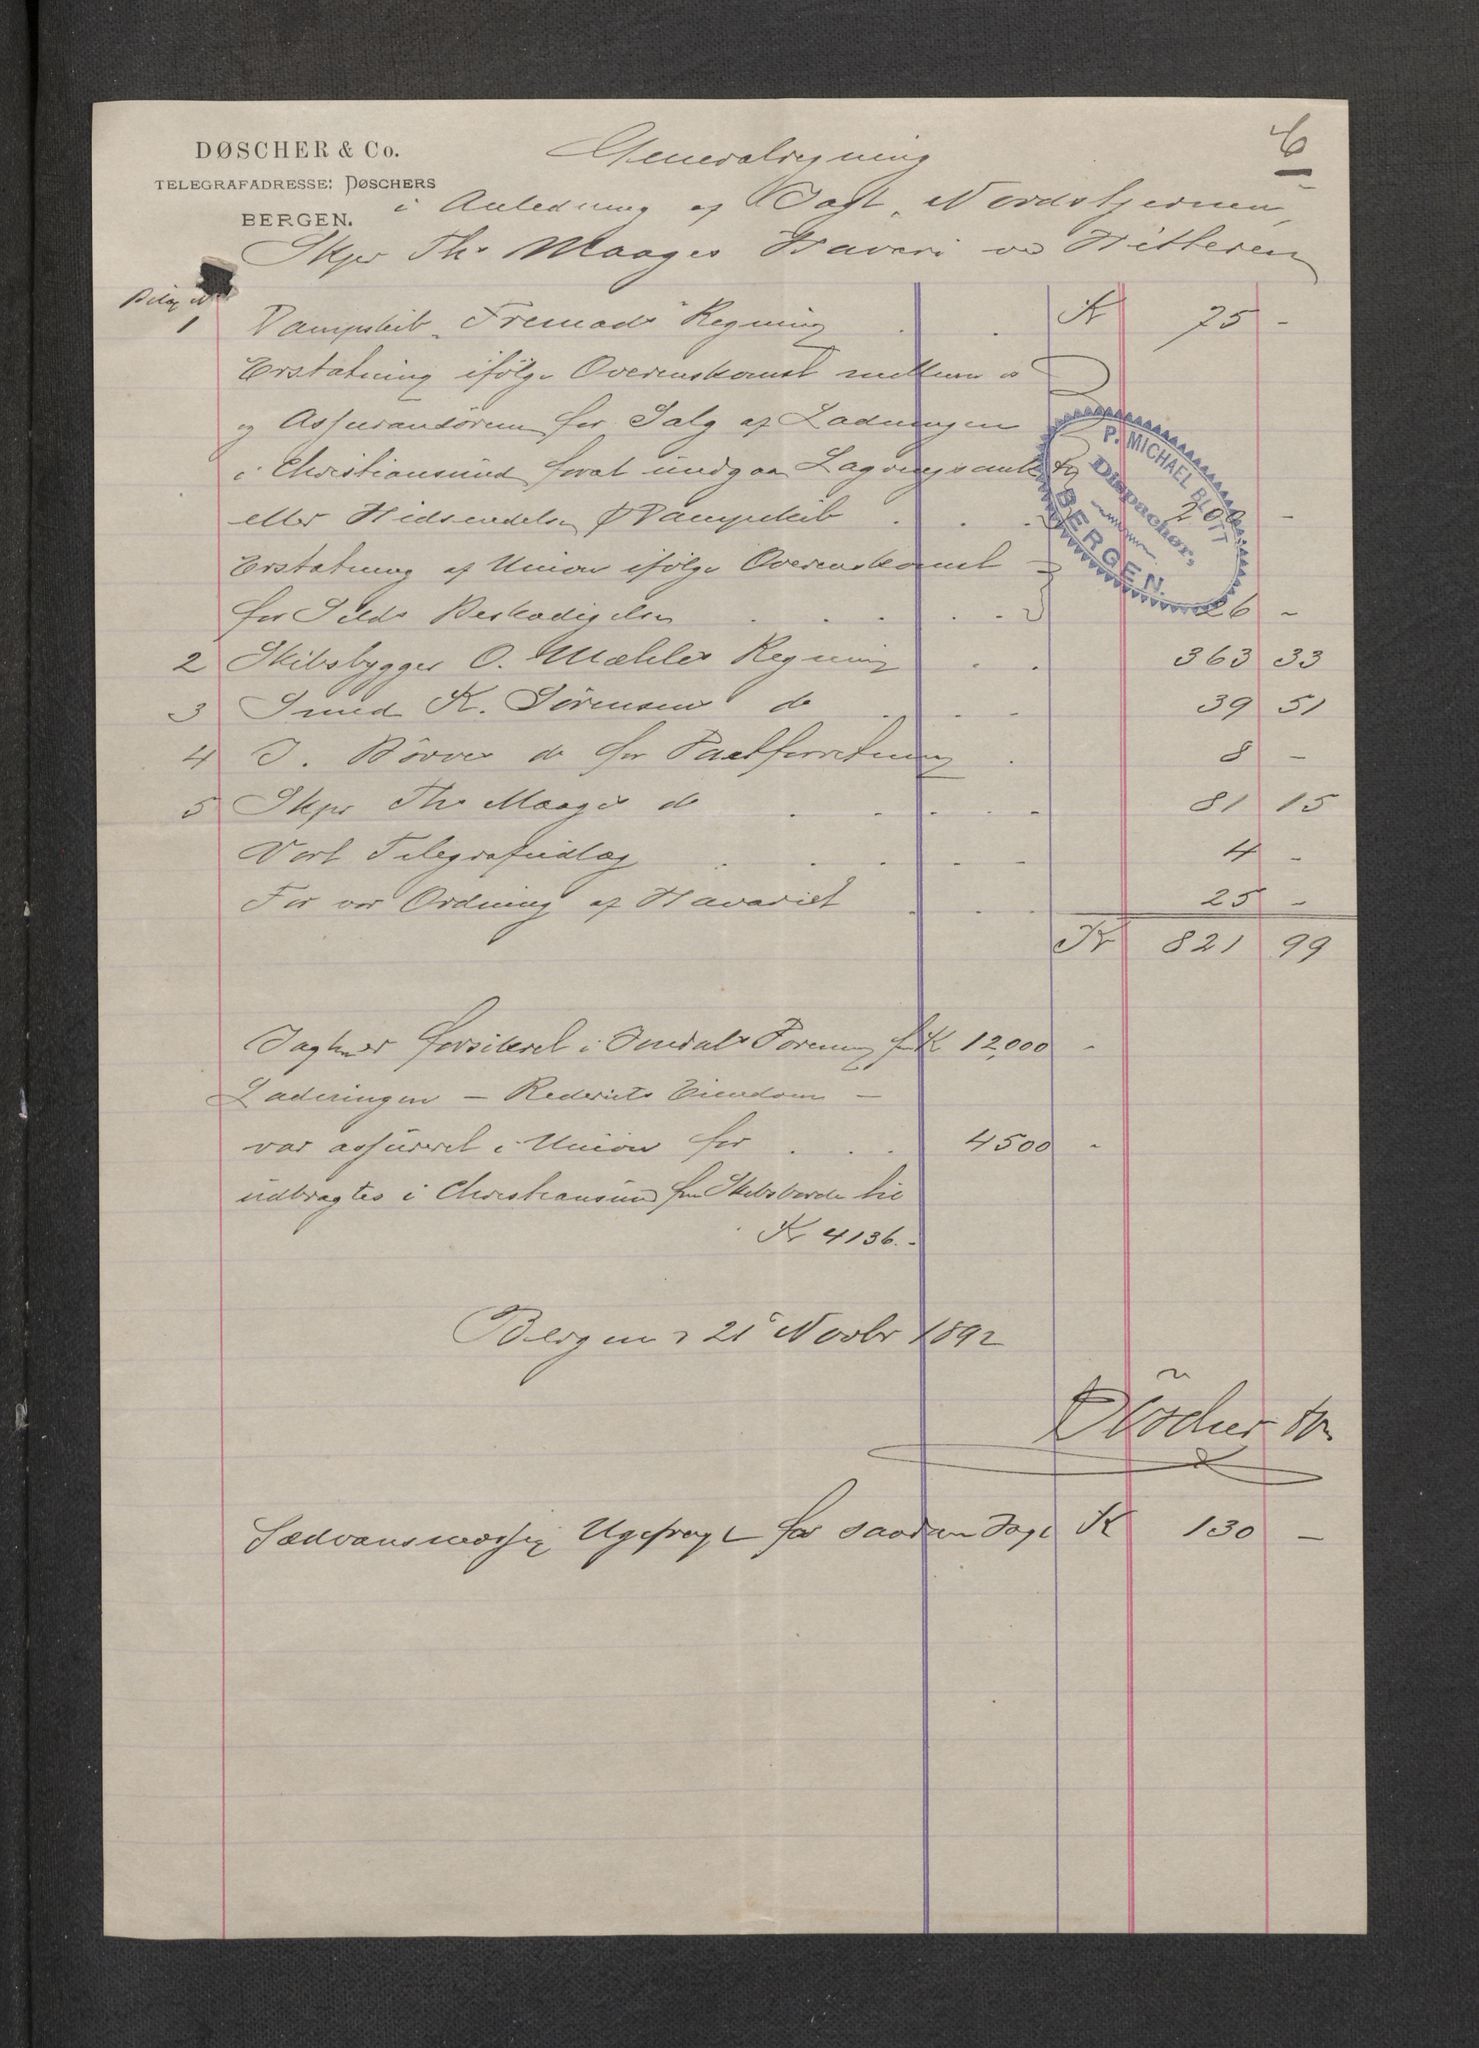 DØSCHER & Co.
TELEGRAFADRESSE: DØSCHERS
BERGEN.
C
Generalregning
i Anledning af Jagt „Nordstjernen"
Skpr Ths Maages Havari ved Hitteren
Bilag No
1 Dampskib „Fremads" Regning . . K 75 -
Erstatning ifölge Overenskomst mellem os
og Assurandören for Salg af Ladningen
i Christiansund forat undgaa Lagring
eller Hidsendelse p Dampskib . . . 200 -
Erstatning af Union ifölge Overenskomst
for Silds Beskadigelse . . . . . 26 -
2 Skibsbygger O. Mæhles Regning . . 363 33
3 Smed K. Sörensens do . . . 39 51
4 J. Bövres do for . 8 -
5 Skpr Ths Maages do . . . . . 81 15
Vort Telegrafudlæg . . . . . 4 -
For vor Ordning af Havariet . . . 25 -
Kr 821 99
P. MICHAEL BLÜTT
Dispachør,
BERGEN.
Jagten er forsikret i Forening for K 12,000 -
Ladningen - Rederiets Eiendom -
var assureret i Union for . . . 4500 -
udbragtes i Christiansund fra Skibsborde til
Kr 4136.-
Bergen d 21 Novbr 1892
Döscher & Co
Sædvansmæssig Ugefragt for saadan Jagt K 130 -